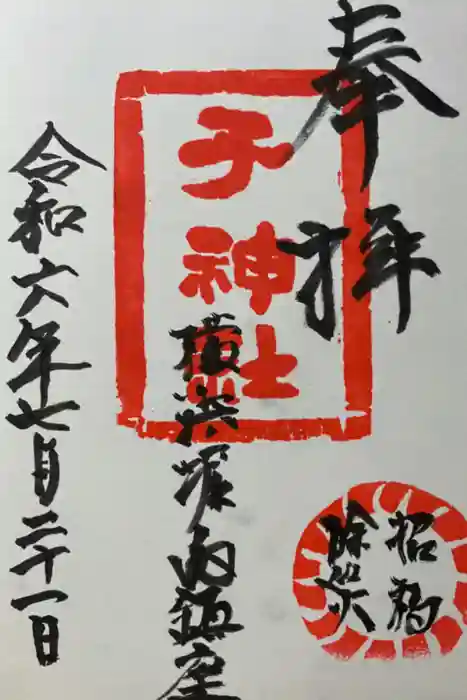 奉拝
子神社
横濱堀内鎮座
招福
除災
令和六年七月二十一日